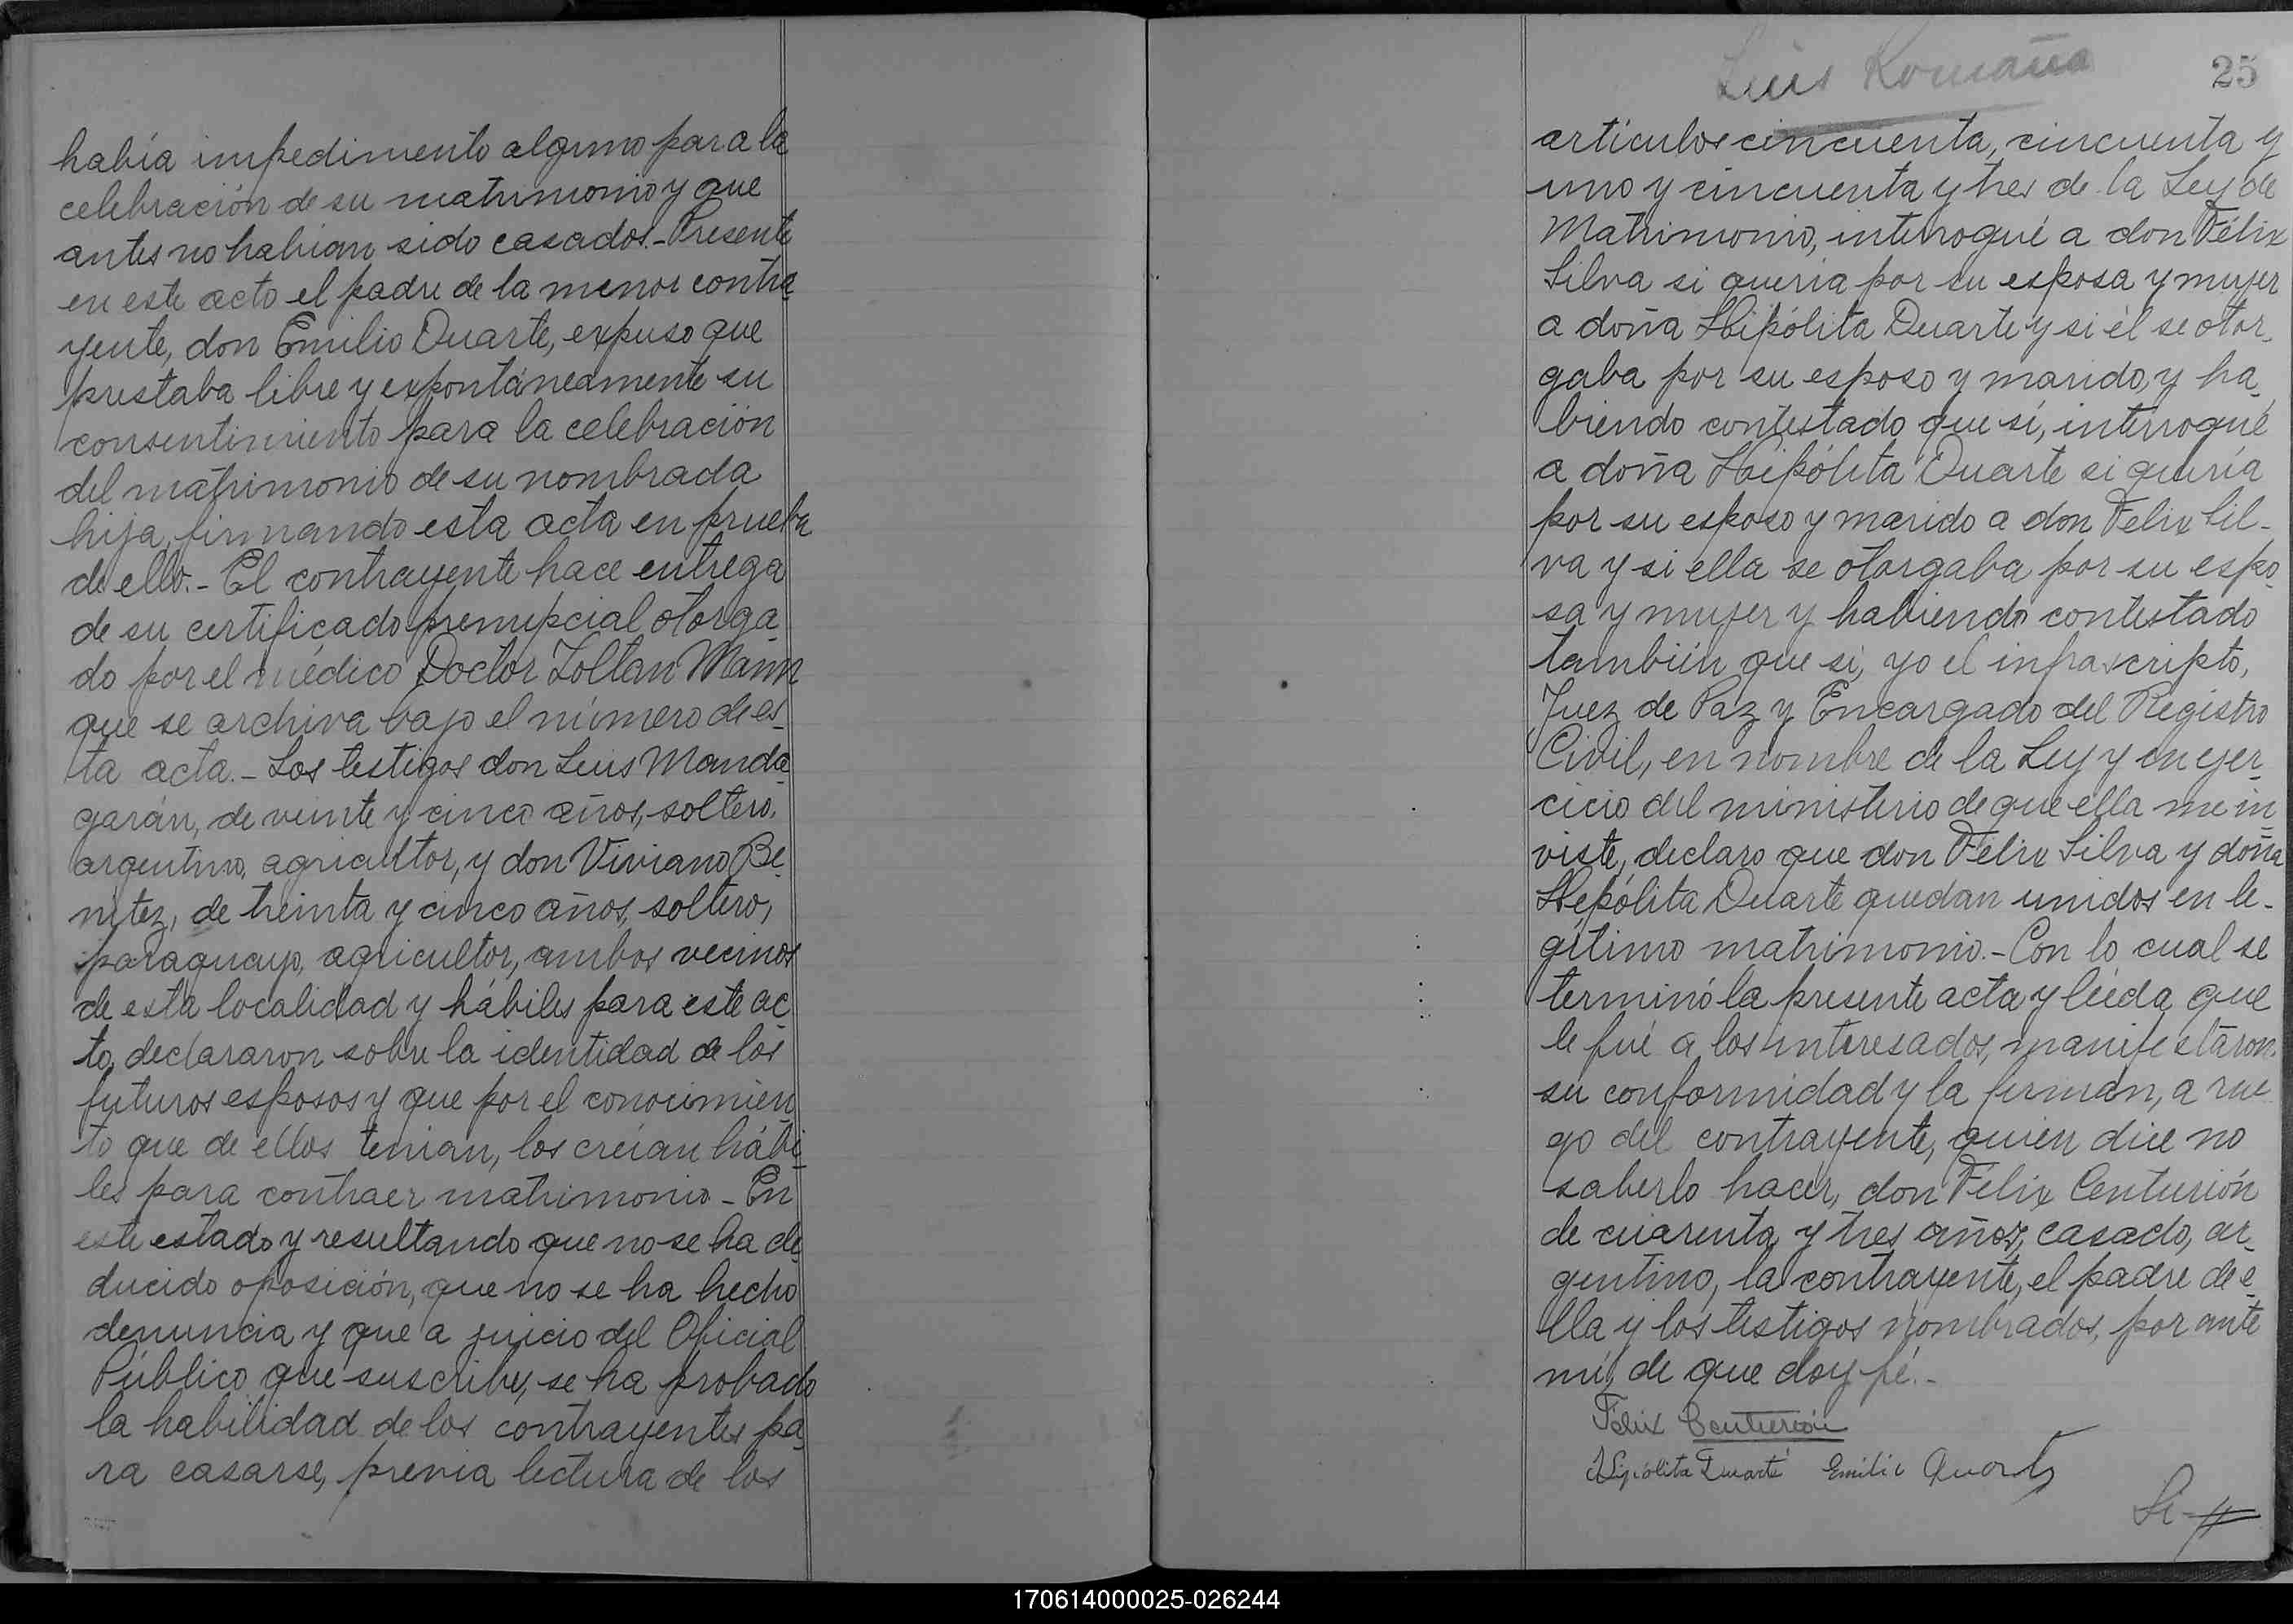 había impedimento alguno para la
celebración de su matrimonio y que
antes no habían sido casados.- Presente
en este acto el padre de la menor contra-
yente, don Emilio Duarte, expuso que
prestaba libre y expontáneamente su
consentimiento para la celebración
del matrimonio de su nombrada
hija, firmando esta acta en prueba
de ello.- El contrayente hace entrega
de su certificado prenupcial otorga-
do por el médico Doctor Zoltan Mann
que se archiva bajo el número de es-
ta acta.- Los testigos don Luis Manda-
garán, de veinte y cinco años, soltero,
argentino, agricultor, y don Viviano Be-
nitez, de treinta y cinco años, soltero,
paraguayo, agricultor, ambos vecinos
de esta localidad y hábiles para este ac
to, declararon sobre la identidad de los
futuros esposos y que por el conocimien-
to que de ellos tenian, los creían hábi-
les para contraer matrimonio - En
este estado y resultando que no se ha de-
ducido oposición, que no se ha hecho
denuncia y que a juicio del Oficial
Público que suscribe, se ha probado
la habilidad de los contrayentes pa-
ra casarse, previa lectura de los
Luis Romaña
25
artículos cincuenta, cincuenta y
uno y cincuenta y tres de la Ley de
Matrimonio, interrogué a don Félix
Silva si quería por su esposa y mujer
a doña Hipólita Duarte y si él se otor-
gaba por su esposo y marido, y ha-
biendo contestado que sí, interrogué
a doña Hipólita Duarte si quería
por su esposo y marido a don Felix Sil-
va y si ella se otorgaba por su espo-
sa y mujer y habiendo contestado
también que si, yo el infrascripto,
Juez de Paz y Encargado del Registro
Civil, en nombre de la Ley y en ejer-
cicio del ministerio de que ella me in
viste, declaro que don Felix Silva y doña
Hipólita Duarte quedan unidos en le-
gitimo matrimonio.- Con lo cual se
terminó la presente acta y leída que
le fué a los interesados, manifestaron
su conformidad y la firman, a rue
go del contrayente, quien dice no
saberlo hacer, don Felix Centurión
de cuarenta y tres años, casado, ar-
gentino, la contrayente, el padre de e-
lla y los testigos nombrados, por ante
mí, de que doy fé.-
Félix Centurión
Hipólita Duarte Emilio Duarte
170614000025-026244